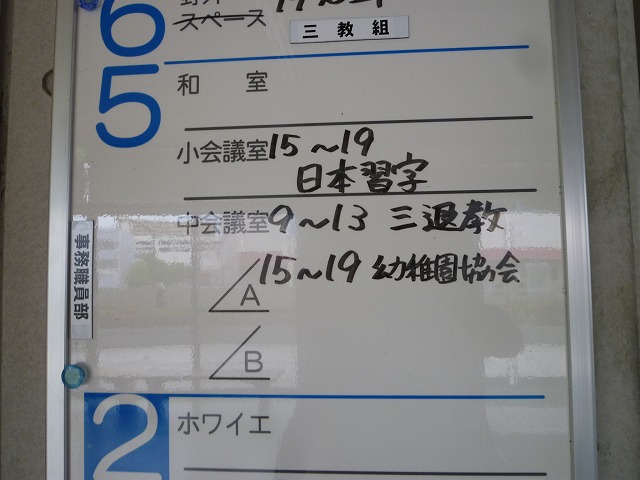 6
スペース
三教組
5
和 室
小会議室 15～19
日本習字
中会議室 9～13 三退教
15～19 幼稚園協会
事務職員部
A
B
2
ホワイエ